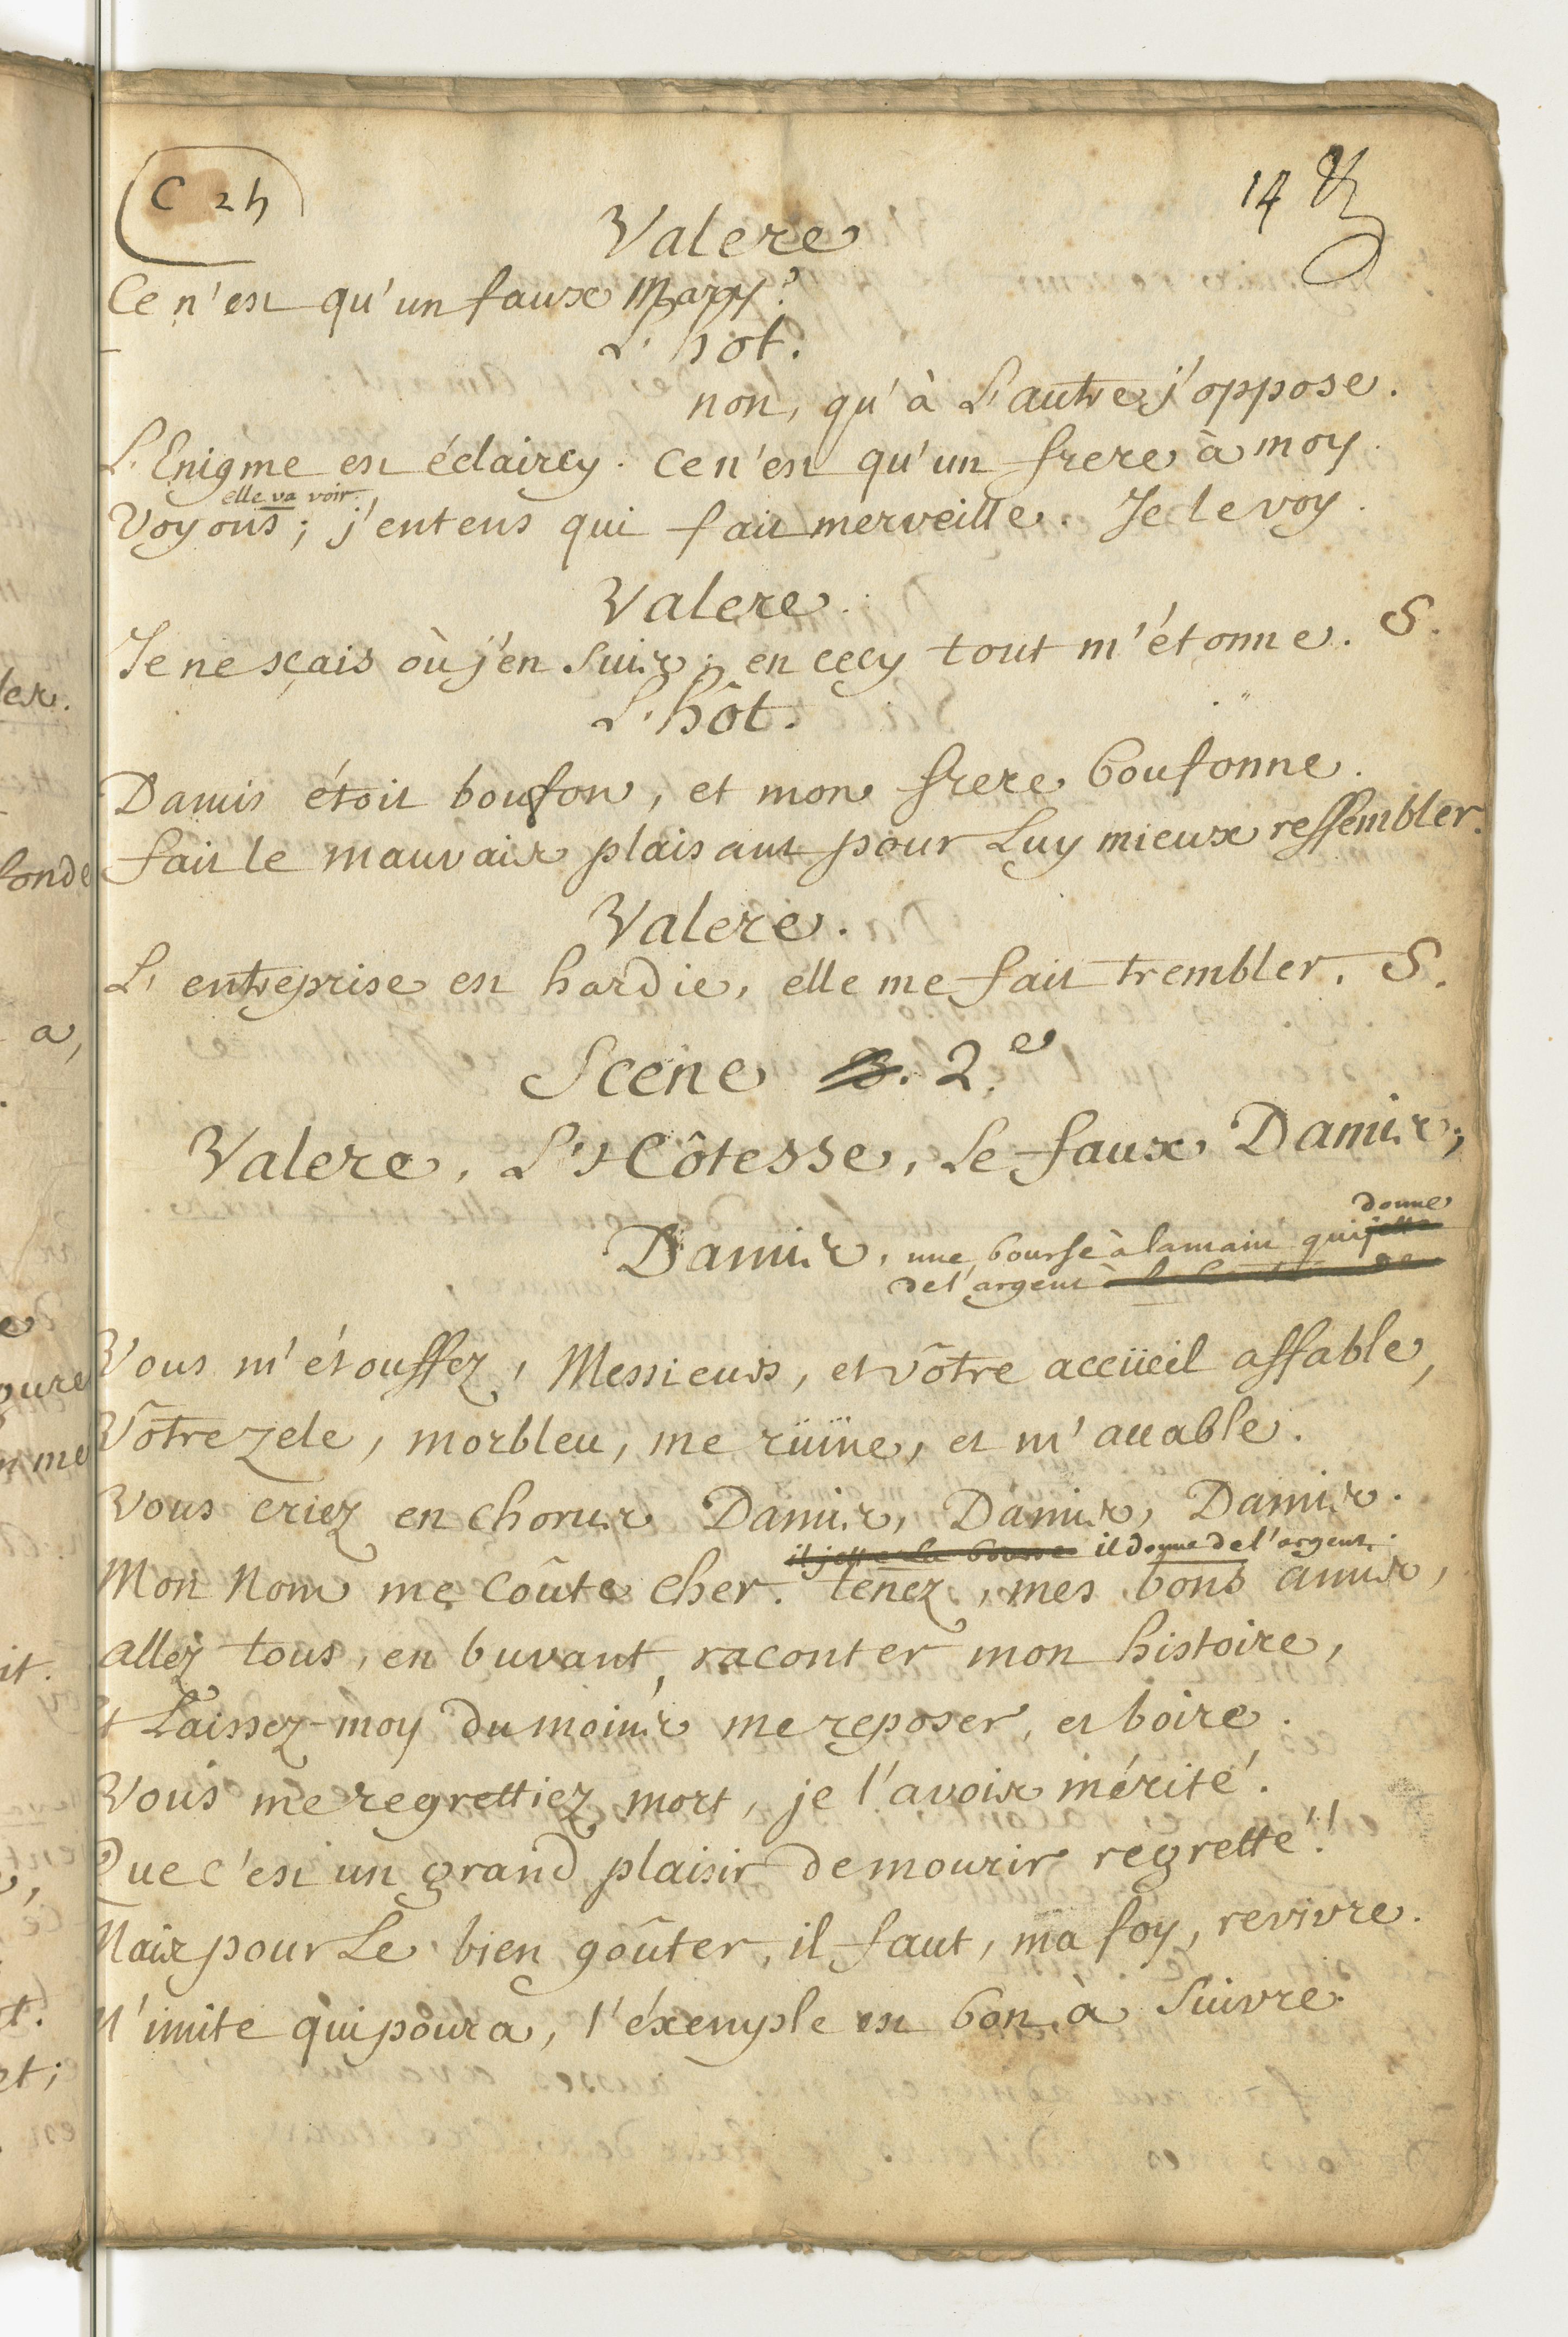 C 2h
14
Valere
Ce n'est qu'un faux Mary?
L'hot.
non, qu'à L'autre j'oppose.
L'Enigme est éclaircy. Ce n'est qu'un frere à moy.
elle va voir.
Voyons; j'entens qui fait merveille. Je le voy.
Valere.
Je ne sçais où j'en suis; en cecy tout m'étonne. S.
L'hôt.
Damis étoit boufon, et mon frere boufonne.
fait le mauvais plaisant pour Luy mieux ressembler.
Valere.
L'entreprise est hardie, elle me fait trembler. S.
Scene 3. 2.e
Valere, L'Hôtesse, Le faux Damis,
donne
Damis, une bourse à la main qui jette
de l'argent à
Vous m'étouffez, Messieurs, et vôtre accüeil affable,
Vôtre zele, morbleu, me rüine, et m'accable.
Vous criez en chorus Damis, Damis, Damis.
il jette la bourse il donne de l'argent.
Mon Nom me coûte cher. tenez, mes bons amis,
allez tous, en buvant, raconter mon histoire,
Et Laissez-moy du moins me reposer, et boire.
Vous me regrettiez mort, je l'avois mérité.
Que c'est un grand plaisir de mourir regretté!
Mais pour Le bien goûter, il faut, ma foy, revivre.
M'imite qui poura, l'éxemple est bon à suivre.